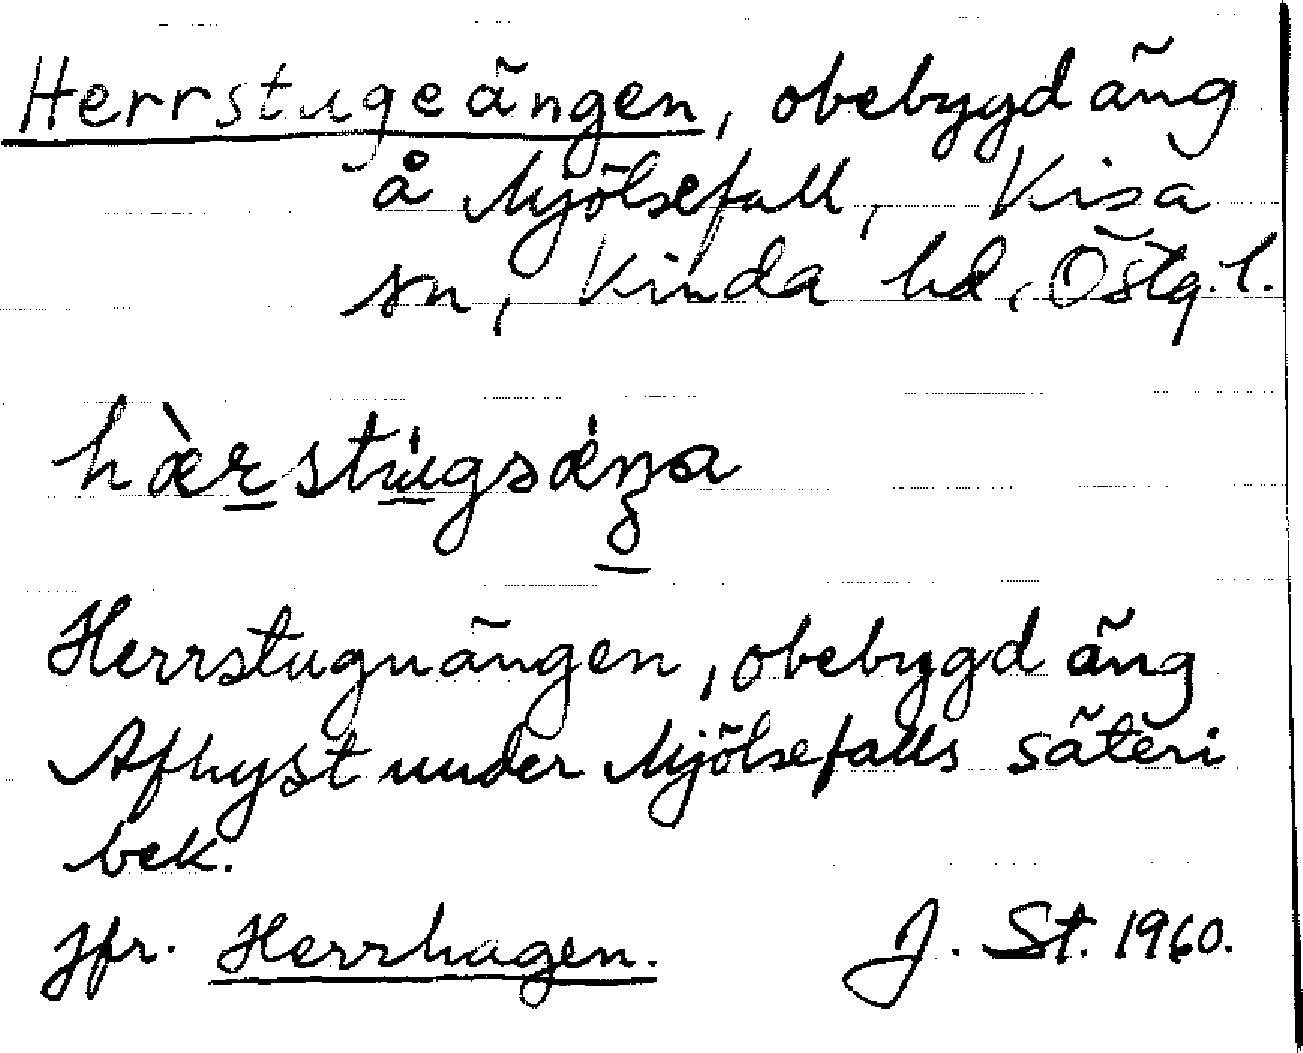 Herrstugeängen, obebygd äng
å Mjölsefall, Kisa
sn, Kinda hd, Östg. l.
hæ̀rstu̇gsæŋa
Herrstuguängen, obebygd äng
Afhyst under Mjölsefalls säteri
bek.
Jfr. Herrhagen. J. St. 1960.